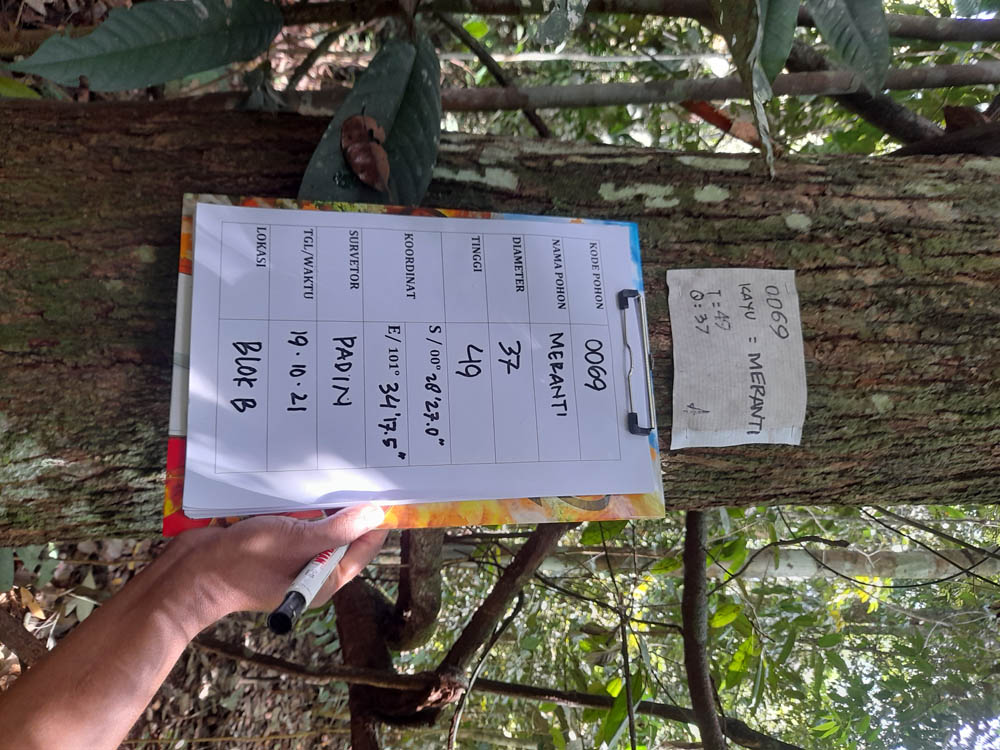 0069
KAYU = MERANTI
T : 49
Q : 37
KODE POHON 0069
NAMA POHON MERANTI
DIAMETER 37
TINGGI 49
KOORDINAT S / 00° 28'27.0"
E / 101° 34'17.5"
SURVETOR PADIN
TGL/WAKTU 19.10.21
LOKASI BLOK B